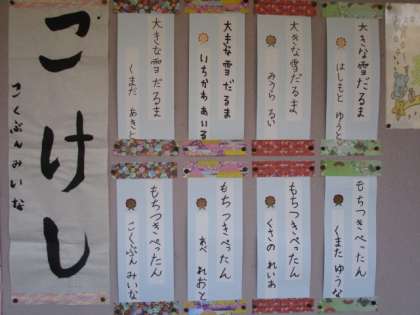 こけし
こくぶんみいな
大きな雪だるま
はしもと ゆうと
大きな雪だるま
みうら るい
大きな雪だるま
いちかわ あいる
大きな雪だるま
くまだ あきと
もちつきぺったん
くまた ゆうな
もちつきぺったん
くさの れいあ
もちつきぺったん
あべ れおと
もちつきぺったん
こくぶん みいな